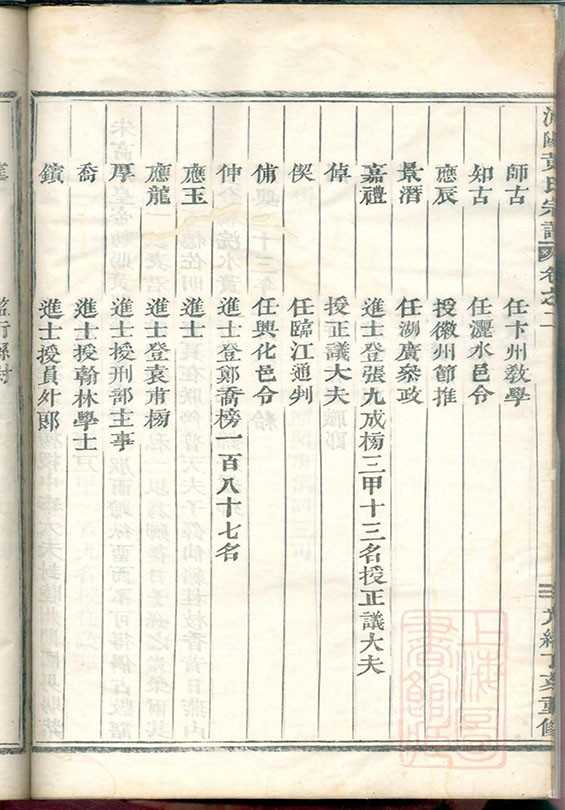 黄氏宗譜 卷之二 三 光緒丁亥重修
師古 任卞州敎學
知古 任灑水邑令
應辰 授徽州節推
景潛 任湖廣叅政
嘉禮 進士登張九成榜三甲十三名授正議大夫
倬 授正議大夫
偰 任臨江通判
俌 任興化邑令
仲 進士登鄭喬榜一百八十七名
應玉 進士
應龍 進士登袁甫榜
厚 進士授刑部主事
喬 進士授翰林學士
鑌 進士授員外郎
上海圖書館藏